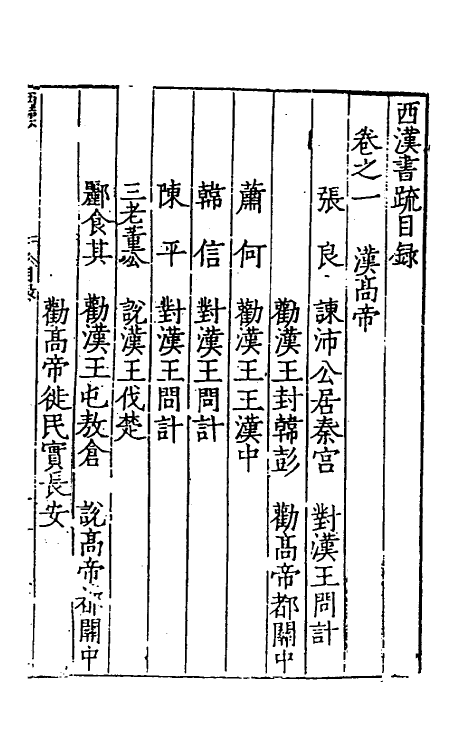 西漢書疏目録
卷之一　漢髙帝
張良　諫沛公居秦宫　對漢王問計
勸漢王封韓彭　勸髙帝都關中
蕭何　勸漢王王漢中
韓信　對漢王問計
陳平　對漢王問計
三老董公　說漢王伐楚
酈食其　勸漢王屯敖倉　說髙帝都關中
勸髙帝徙民實長安